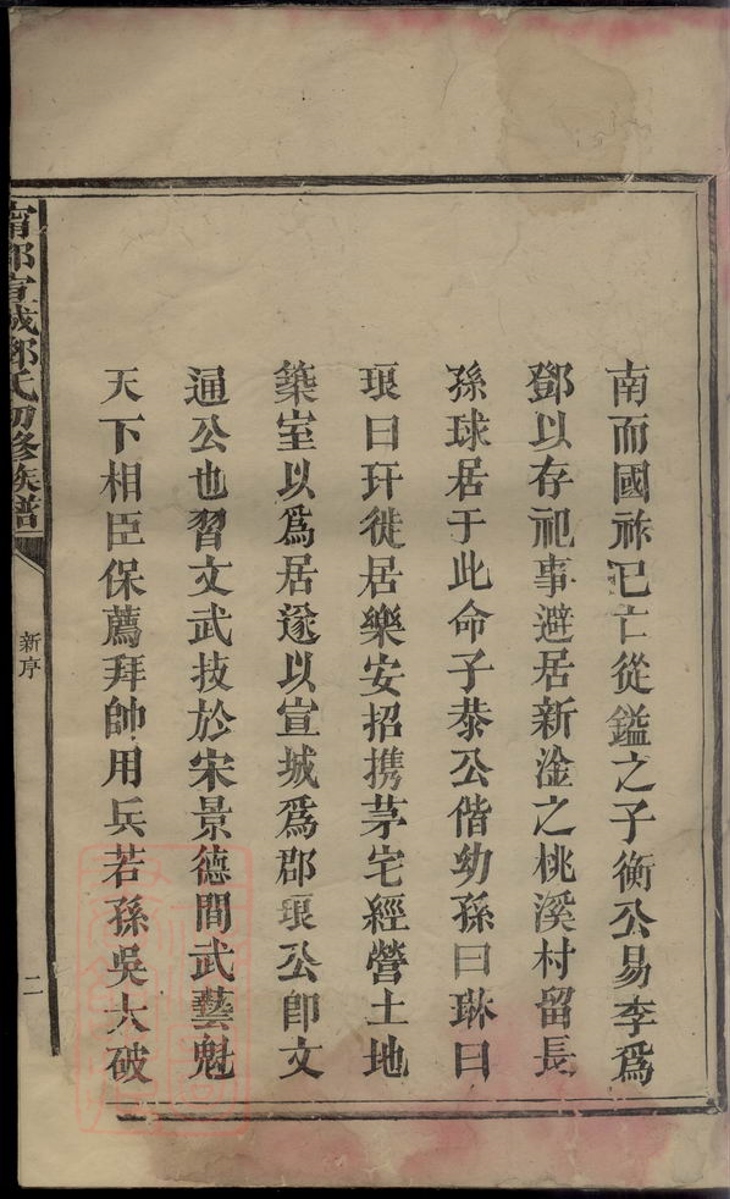 南而國祚已亡從鎰之子衡公易李爲
鄧以存祀事避居新淦之桃溪村留長
孫球居于此命子恭公偕幼孫曰琳曰
琅曰玕徙居樂安招携茅宅經營土地
築室以爲居遂以宣城爲郡琅公卽文
通公也習文武技於宋景德間武藝魁
天下相臣保薦拜帥用兵若孫吳大破
甯都宣城鄧氏初修族譜
新序
二